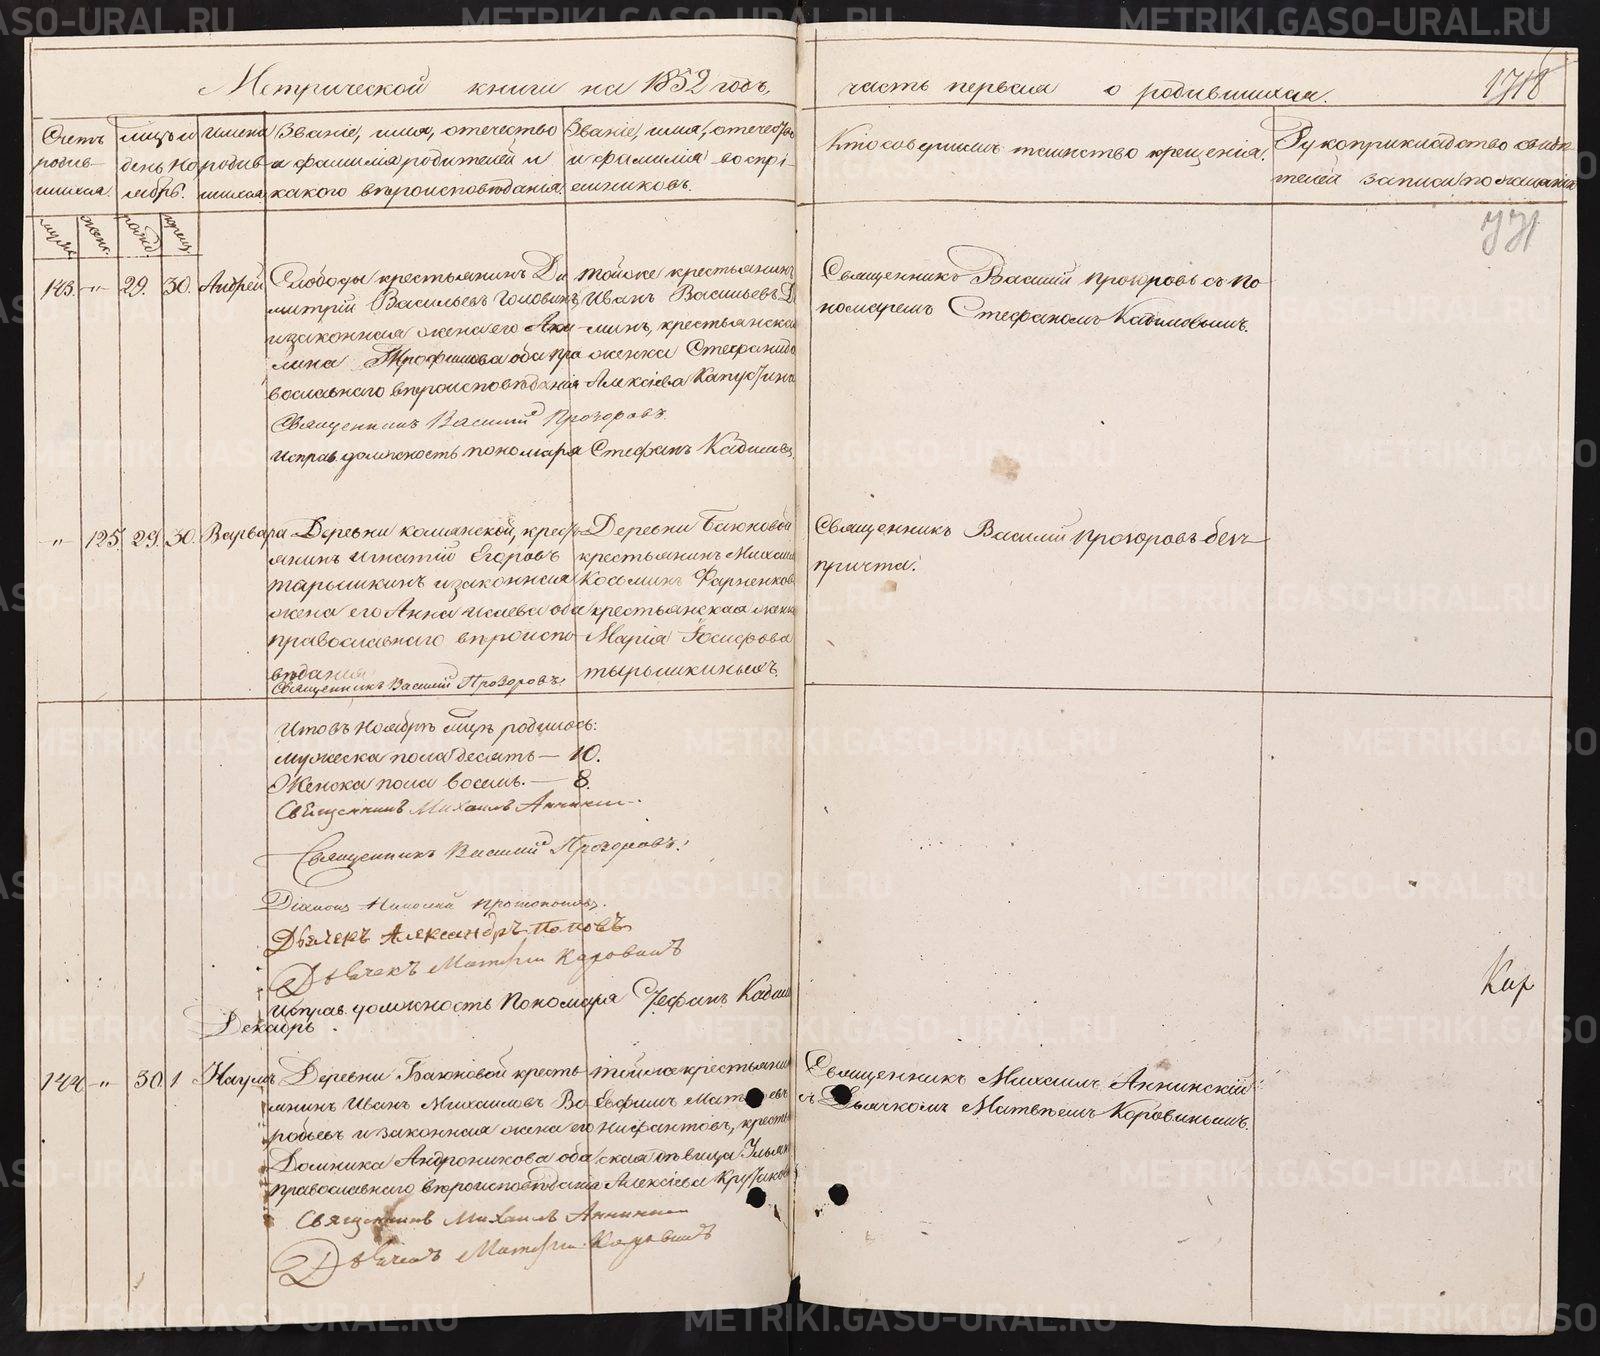 Метрической книги на 1852 годъ,
часть первая о родившихся.
1718
771
Счетъ родив-шихся.
Мѣсяцъ и день Ноябрь.
Имена родив-шихся.
Званіе, имя, отечество
и фамилія родителей и
какого вѣроисповѣданія.
Званіе, имя, отечество
и фамилія воспрі-
емниковъ.
Кто совершалъ таинство крещенія.
Рукоприкладство свидѣ-
телей записи по желанію
143. -"- 29. 30. Андрей
Слободы крестьянинъ Ди
митрій Васильевъ Головинъ,
и законная жена его Аку
лина Трофимова оба пра
вославнаго вѣроисповѣданія
Священникъ Василий Прозоровъ.
Исправ. должность пономаря Стефанъ Кадиловъ,
Той же крестьянинъ
Иванъ Васильевъ
минъ, крестьянская
женка Стефанида
Алексіева Капустина
Священникъ Василий Прозоровъ съ по
номаремъ Стефаномъ Кадиловымъ.
" 125. 29. 30. Варвара
Деревни команской, крест
янинъ Игнатій Егоровъ
тарышкинъ и законная
жена его Анна Исаева оба
православнаго вѣроиспо
вѣданія
Священникъ Василий Прозоровъ.
Деревни Баюновой
крестьянинъ Михаил
Косьминъ
крестьянская жена
Марія Іосифова
тырышкиныхъ.
Священникъ Василий Прозоровъ безъ
причта.
Итовъ Ноябрѣ мцѣ родилось:
мужеска пола десять — 10.
Женска пола восемь. — 8.
Священникъ Михаилъ Аннинский.
Священникъ Василий Прозоровъ.
Діаконъ Николай Протопоповъ.
Дьячекъ Александръ Поповъ
Дьячекъ Матфѣй Коровинъ
Исправ. должность Пономаря Стефанъ Кадил
Кор
Декабрь.
144 -"- 30. 1 Наумъ
Деревни Баюновой кресть
янинъ Иванъ Михаиловъ Во
робьевъ и законная жена его
Домника Андроникова оба
православнаго вѣроисповѣданія
Священникъ Михаилъ Аннинский
Дьячекъ Матфѣй Коровинъ
той же крестьянин
Ефимъ Матвѣевъ
Нифантовъ, кресть
ская дѣвица Ульян
Алексіева
Священникъ Михаилъ Аннинскій
съ Дьячкомъ Матвѣемъ Коровинымъ.
METRIKI.GASO-URAL.RU